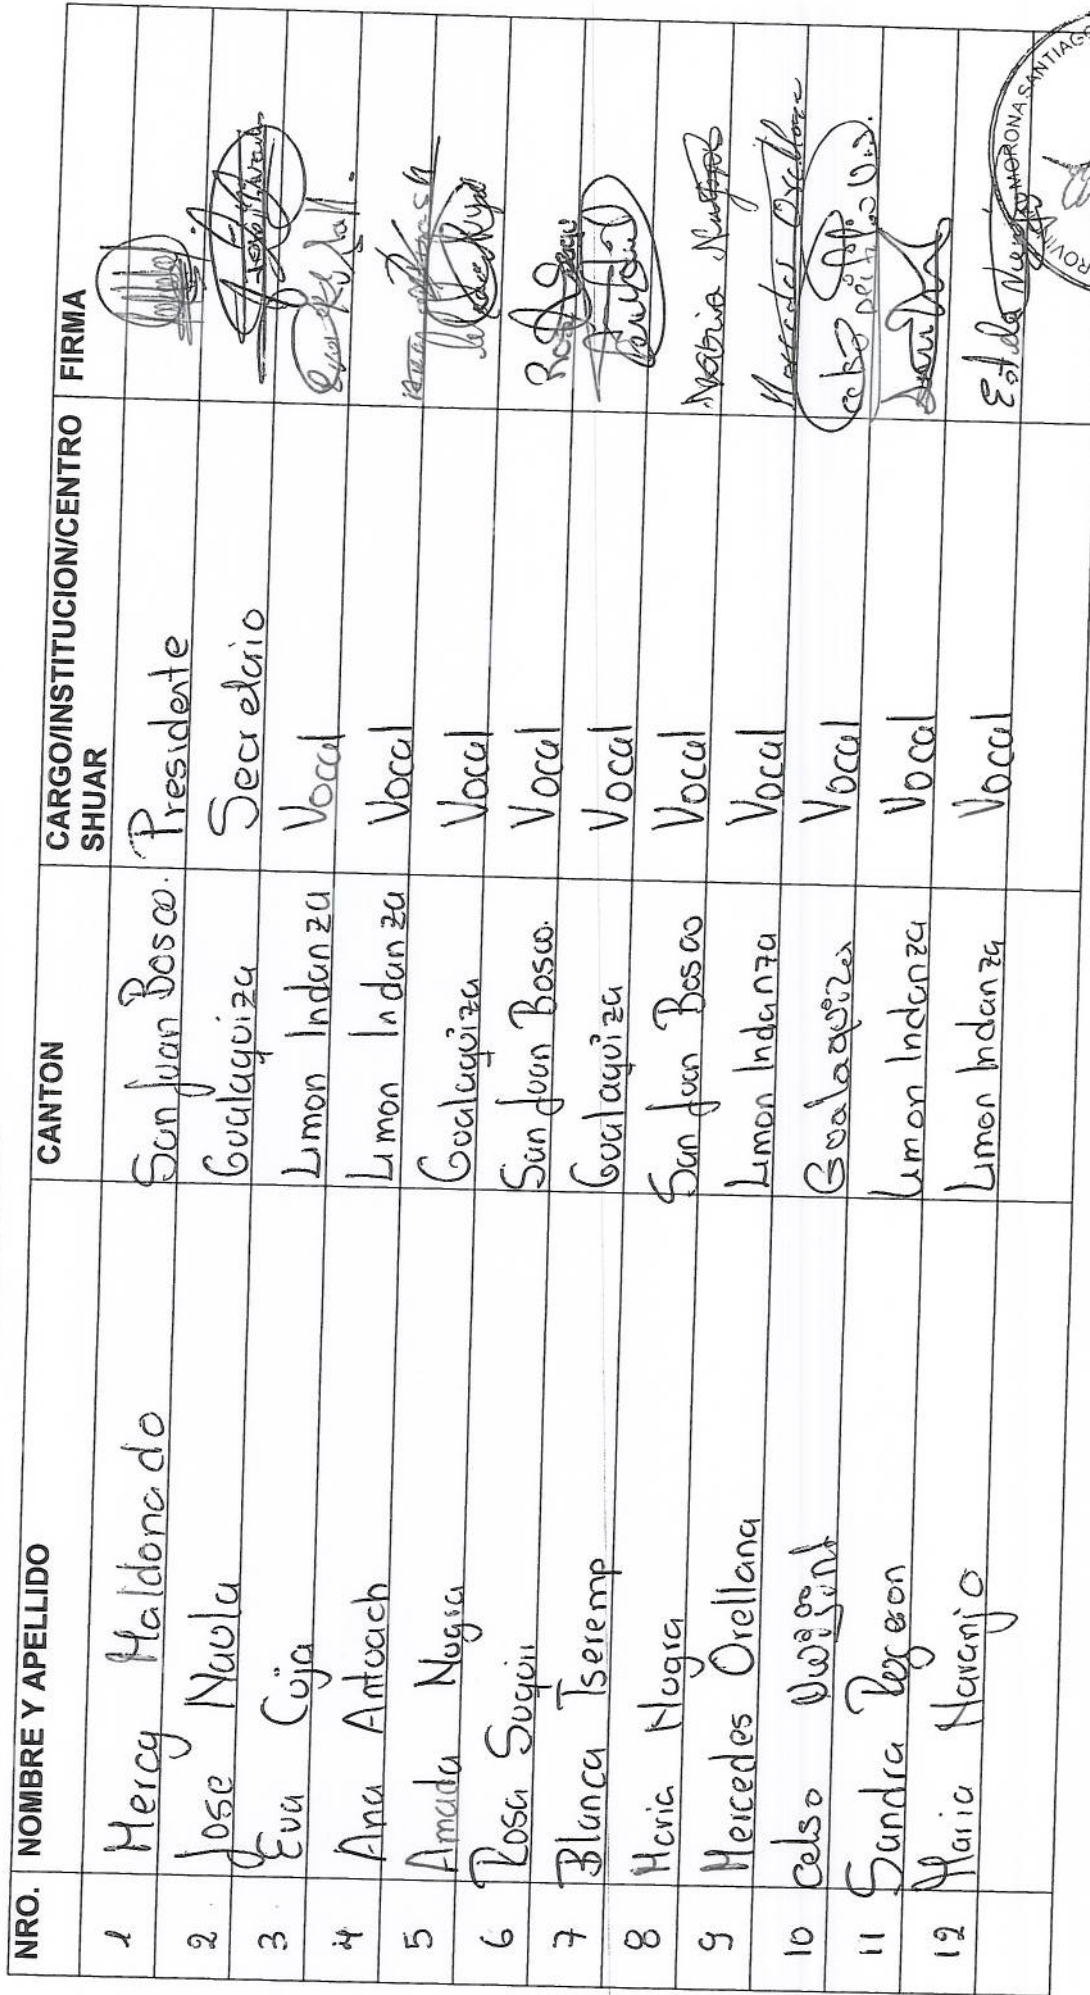 NRO. NOMBRE Y APELLIDO CANTON CARGO/INSTITUCION/CENTRO SHUAR FIRMA
1 Mercy Maldonado San Juan Bosco. Presidente
2 Jose Naula Gualaquiza Secretario
3 Eva Cuja Limon Indanza Vocal
4 Ana Antuach Limon Indanza Vocal
5 Amada Nugra Gualaquiza Vocal
6 Rosa Suquii San Juan Bosco. Vocal Rosa
7 Blanca Tseremp Gualaquiza Vocal
8 Maria Nugra San Juan Bosco Vocal Maria Nugra
9 Mercedes Orellana Limon Indanza Vocal Mercedes Orellana
10 Celso Gualaquiza Vocal
11 Sandra Limon Indanza Vocal
12 Maria Naranjo Limon Indanza Vocal Estela
MORONA SANTIAGO